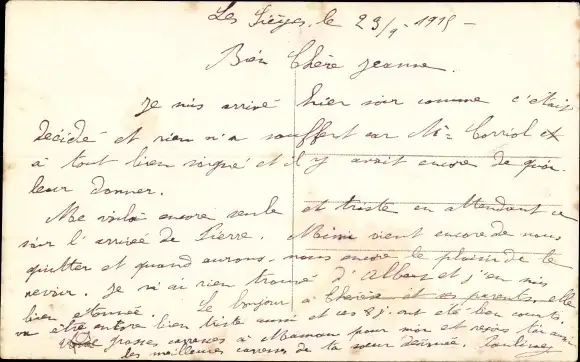 Les Sièges, le 23/9-1915-
Bien Chère Jeanne.
Je suis arrivé hier soir comme c'était
décidé et rien n'a souffert car Me Corriol
a tout bien soigné et il y avait encore de quoi
leur donner.
Me voilà encore seule et triste en attendant ce
soir l'arrivée de Pierre. Mimi vient encore de nous
quitter et quand aurons-nous encore le plaisir de te
revoir. Je n'ai rien trouvé d'Albert et j'en suis
bien étonnée. Le bonjour à Thérèse et ses parents, elle
va être encore bien triste aussi et ces 8 j. ont été bien courts.
grosses caresses à Maman pour moi et reçois toi aussi
les meilleures caresses de ta sœur dévouée. Pauline